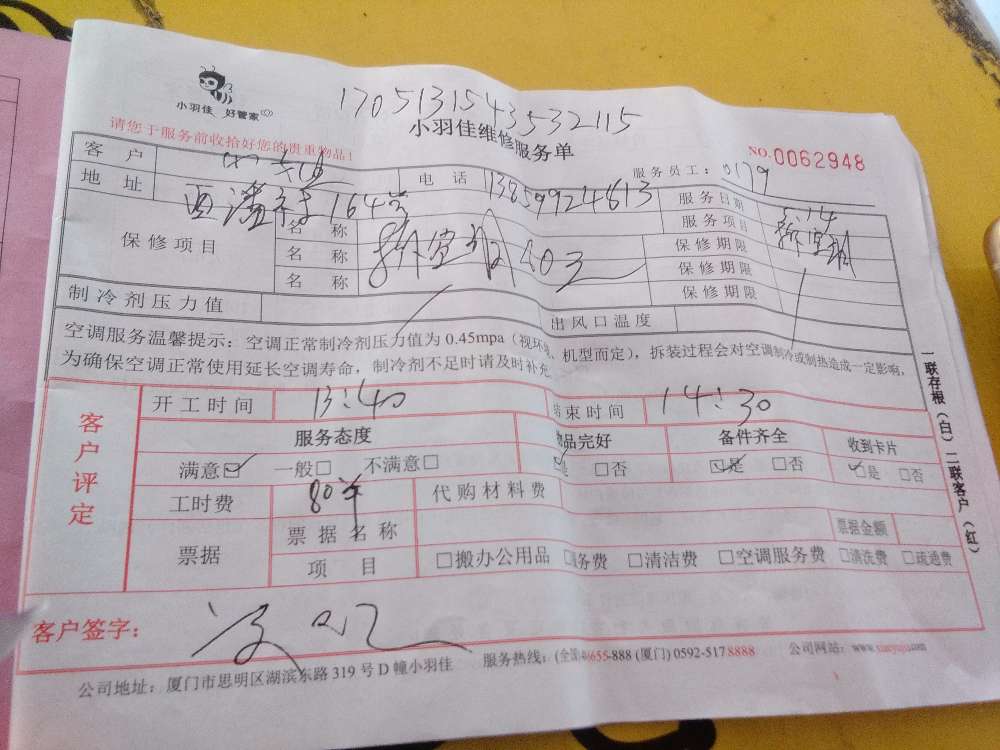 小羽佳 好管家
17051315443532115
小羽佳维修服务单
请您于服务前收拾好您的贵重物品!
NO.0062948
客 户 电 话 13859924813 服务员工: 0179
地 址 164号 服务日期 5.14
保修项目 名 称 保修期限 服务项目
名 称 403 保修期限
名 称 保修期限
制冷剂压力值 出风口温度
空调服务温馨提示: 空调正常制冷剂压力值为 0.45mpa (视环境、机型而定), 拆装过程会对空调制冷或制热造成一定影响,
为确保空调正常使用延长空调寿命, 制冷剂不足时请及时补充
一联存根(白) 二联客户(红)
客户评定
开工时间 13:40 结束时间 14:30
服务态度 物品完好 备件齐全 收到卡片
满意☑ 一般□ 不满意□ ☑是 □否 ☑是 □否 ☑是 □否
工时费 80 代购材料费
票据 票据名称 票据金额
项 目 □搬办公用品 □务费 □清洁费 □空调服务费 □清洗费 □疏通费
客户签字:
公司地址: 厦门市思明区湖滨东路 319 号 D 幢小羽佳 服务热线: (全国 655-888 (厦门) 0592-5178888 公司网站: www.xiaoyujia.com